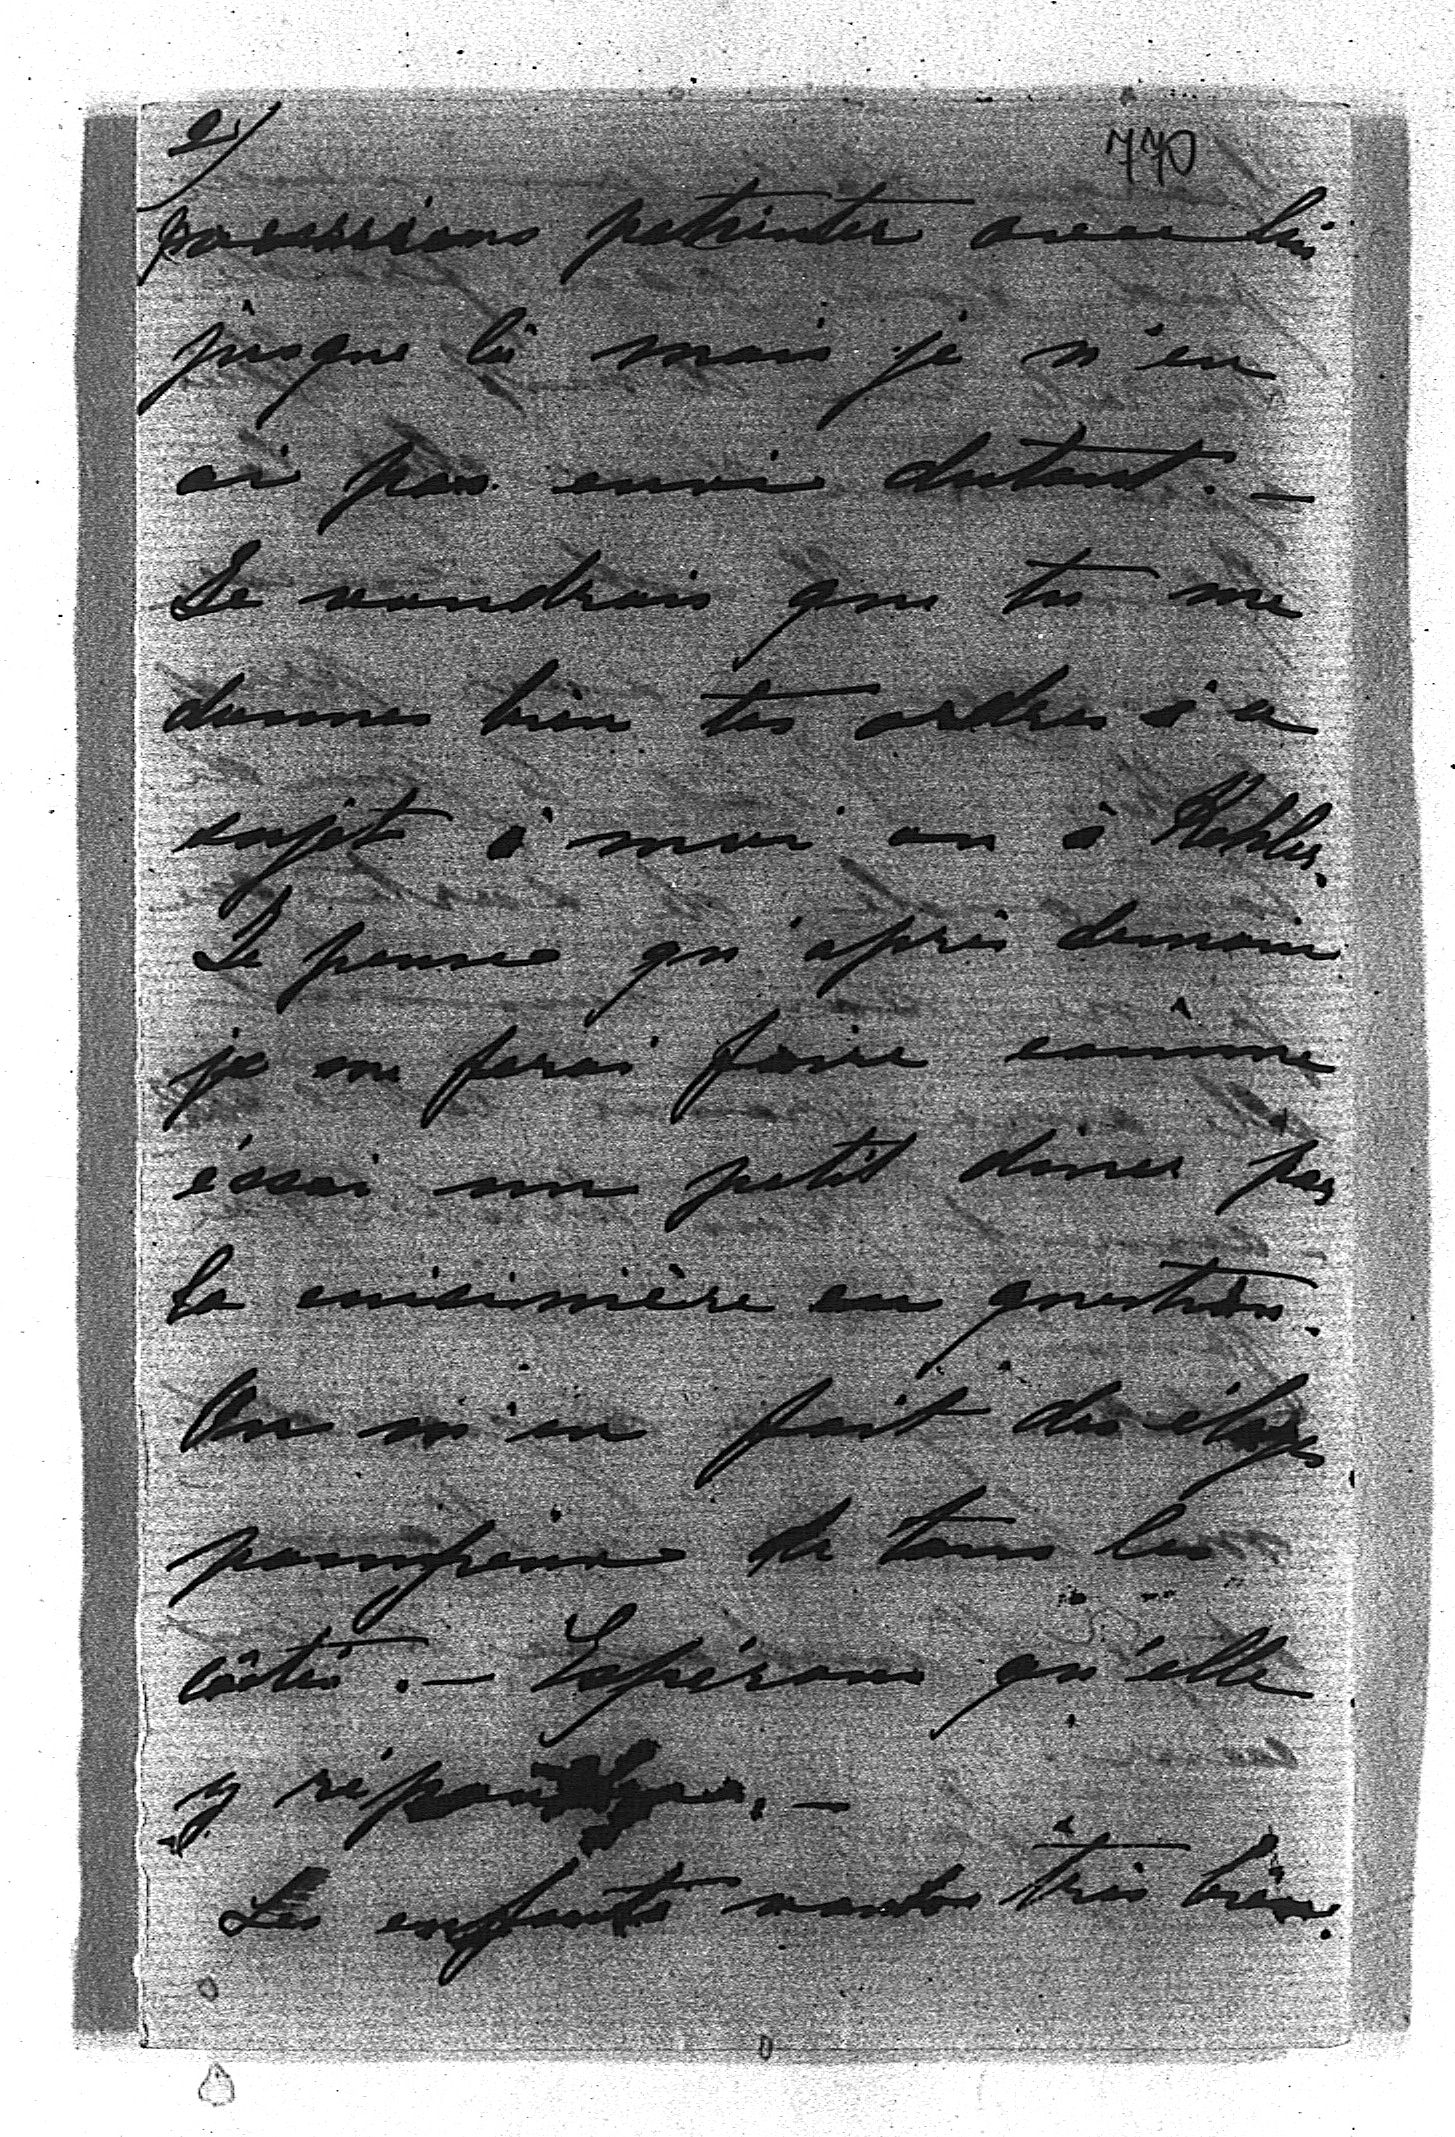 2/ 770
pourrions patienter avec lui
jusque là mais je n'en
ai pas envie dutout. —
Je voudrais que tu me
donnes bien tes ordres à ce
sujet à moi ou à Kohler.
Je pense qu'après demain
je me ferai faire comme
éssai un petit diner par
la cuisinière en question.
On m'en fait des éloges
pompeux de tous les
côtés. — Espérons qu'elle
y répondra. —
Les enfants vont très bien.